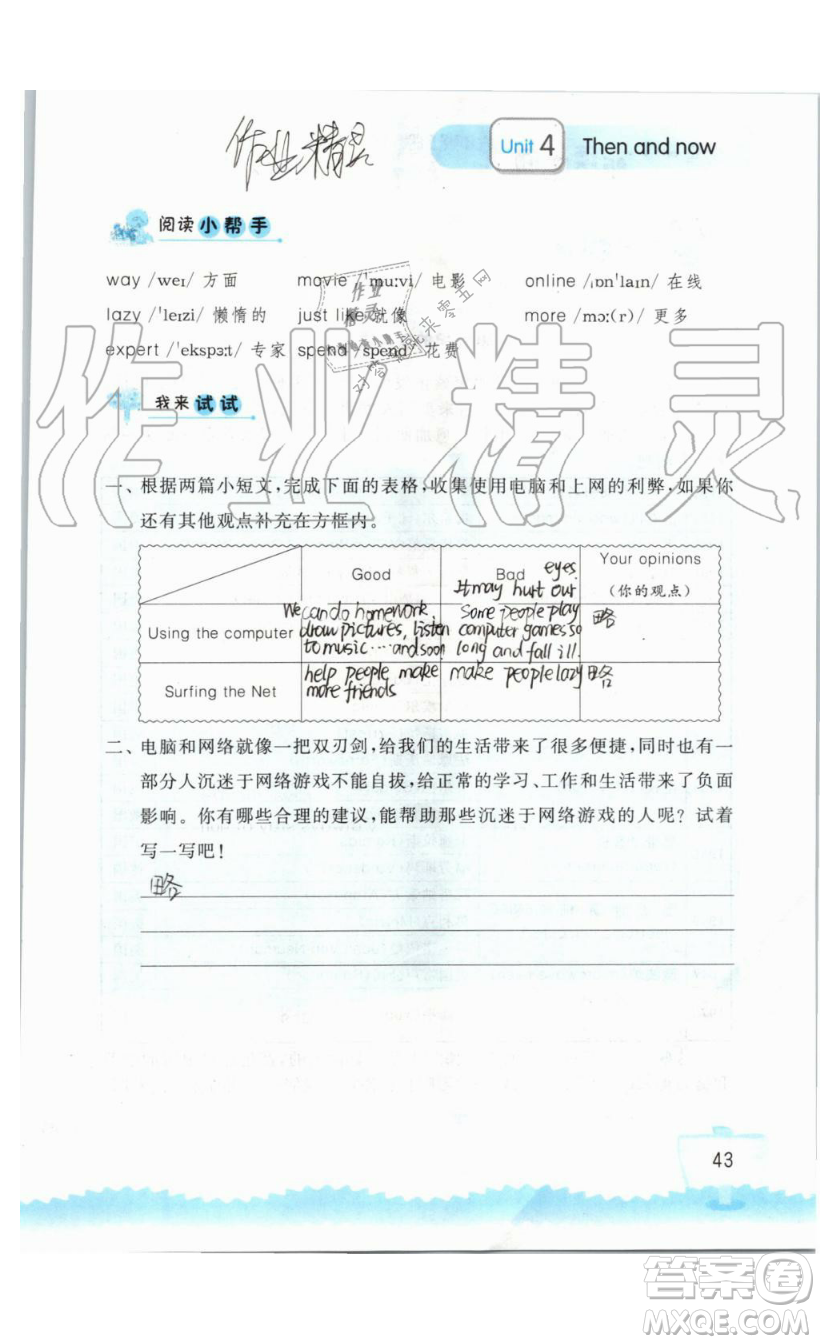 作业精灵
Unit 4 Then and now
阅读小帮手
way /weɪ/ 方面 movie /ˈmuːvi/ 电影 online /ˌɒnˈlaɪn/ 在线
lazy /ˈleɪzi/ 懒惰的 just like 就像 more /mɔː(r)/ 更多
expert /ˈekspɜːt/ 专家 spend /spend/ 花费
作业
精灵
对答案就来零五网
作业精灵
我来试试
一、根据两篇小短文,完成下面的表格,收集使用电脑和上网的利弊,如果你
还有其他观点补充在方框内。
Good Bad Your opinions
(你的观点)
Using the computer
We can do homework,
draw pictures, listen
to music……and soon
It may hurt our eyes.
Some people play
computer games so
long and fall ill.
略
Surfing the Net
help people make
more friends
make people lazy
略
二、电脑和网络就像一把双刃剑,给我们的生活带来了很多便捷,同时也有一
部分人沉迷于网络游戏不能自拔,给正常的学习、工作和生活带来了负面
影响。你有哪些合理的建议,能帮助那些沉迷于网络游戏的人呢?试着
写一写吧!
略
43
答案圈
MXQE.COM